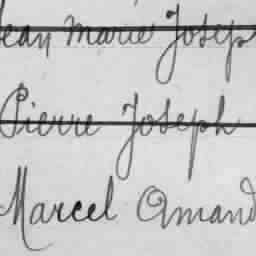 Jean Marie Joseph
Pierre Joseph
Marcel Amand